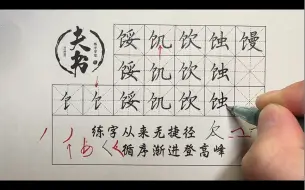 夫书
馁 饥 饮 蚀 馒
馁 饥 饮 蚀
饣 饣 饥 饥 饮 蚀
练字从来无捷径
循序渐进登高峰